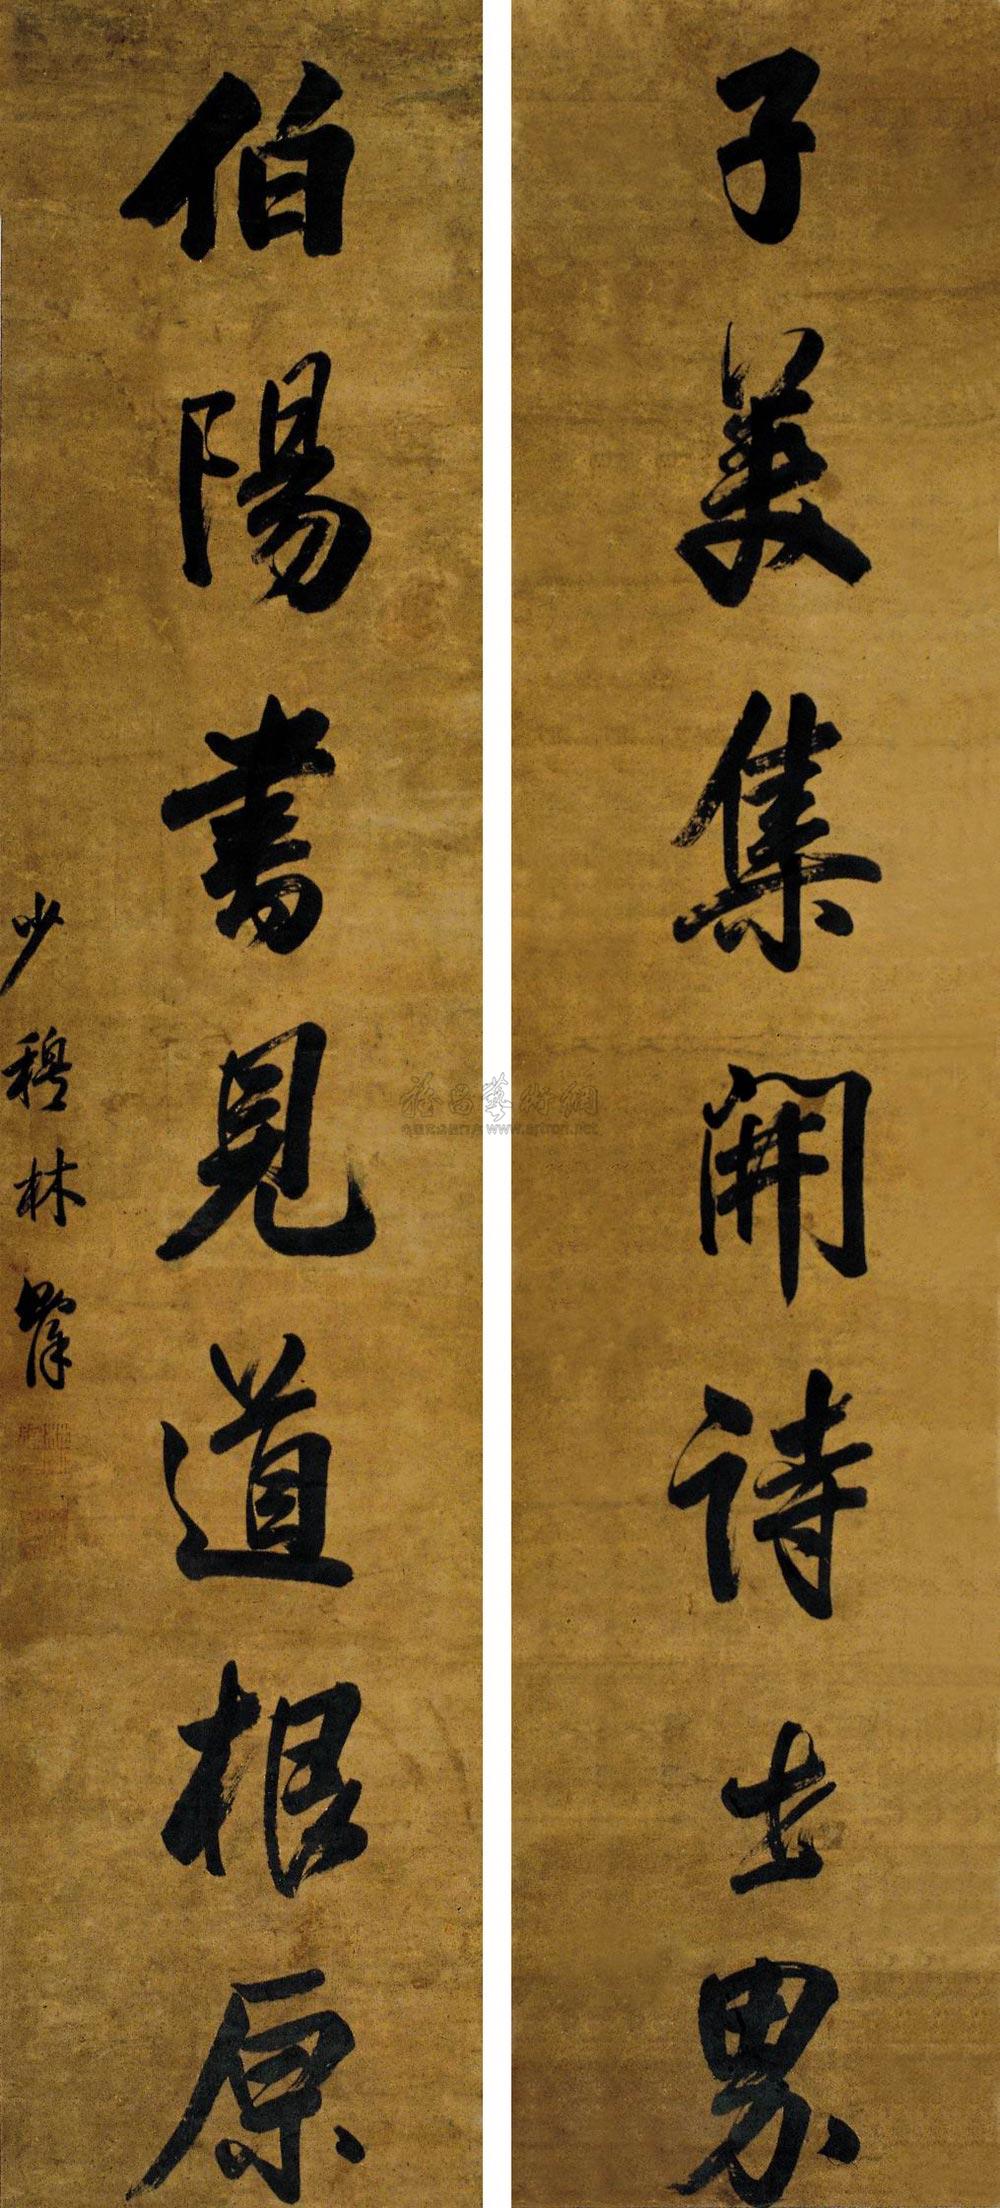 子美集開詩世界
伯陽書見道根原
少穆林則徐
雅昌藝術網
www.artron.net